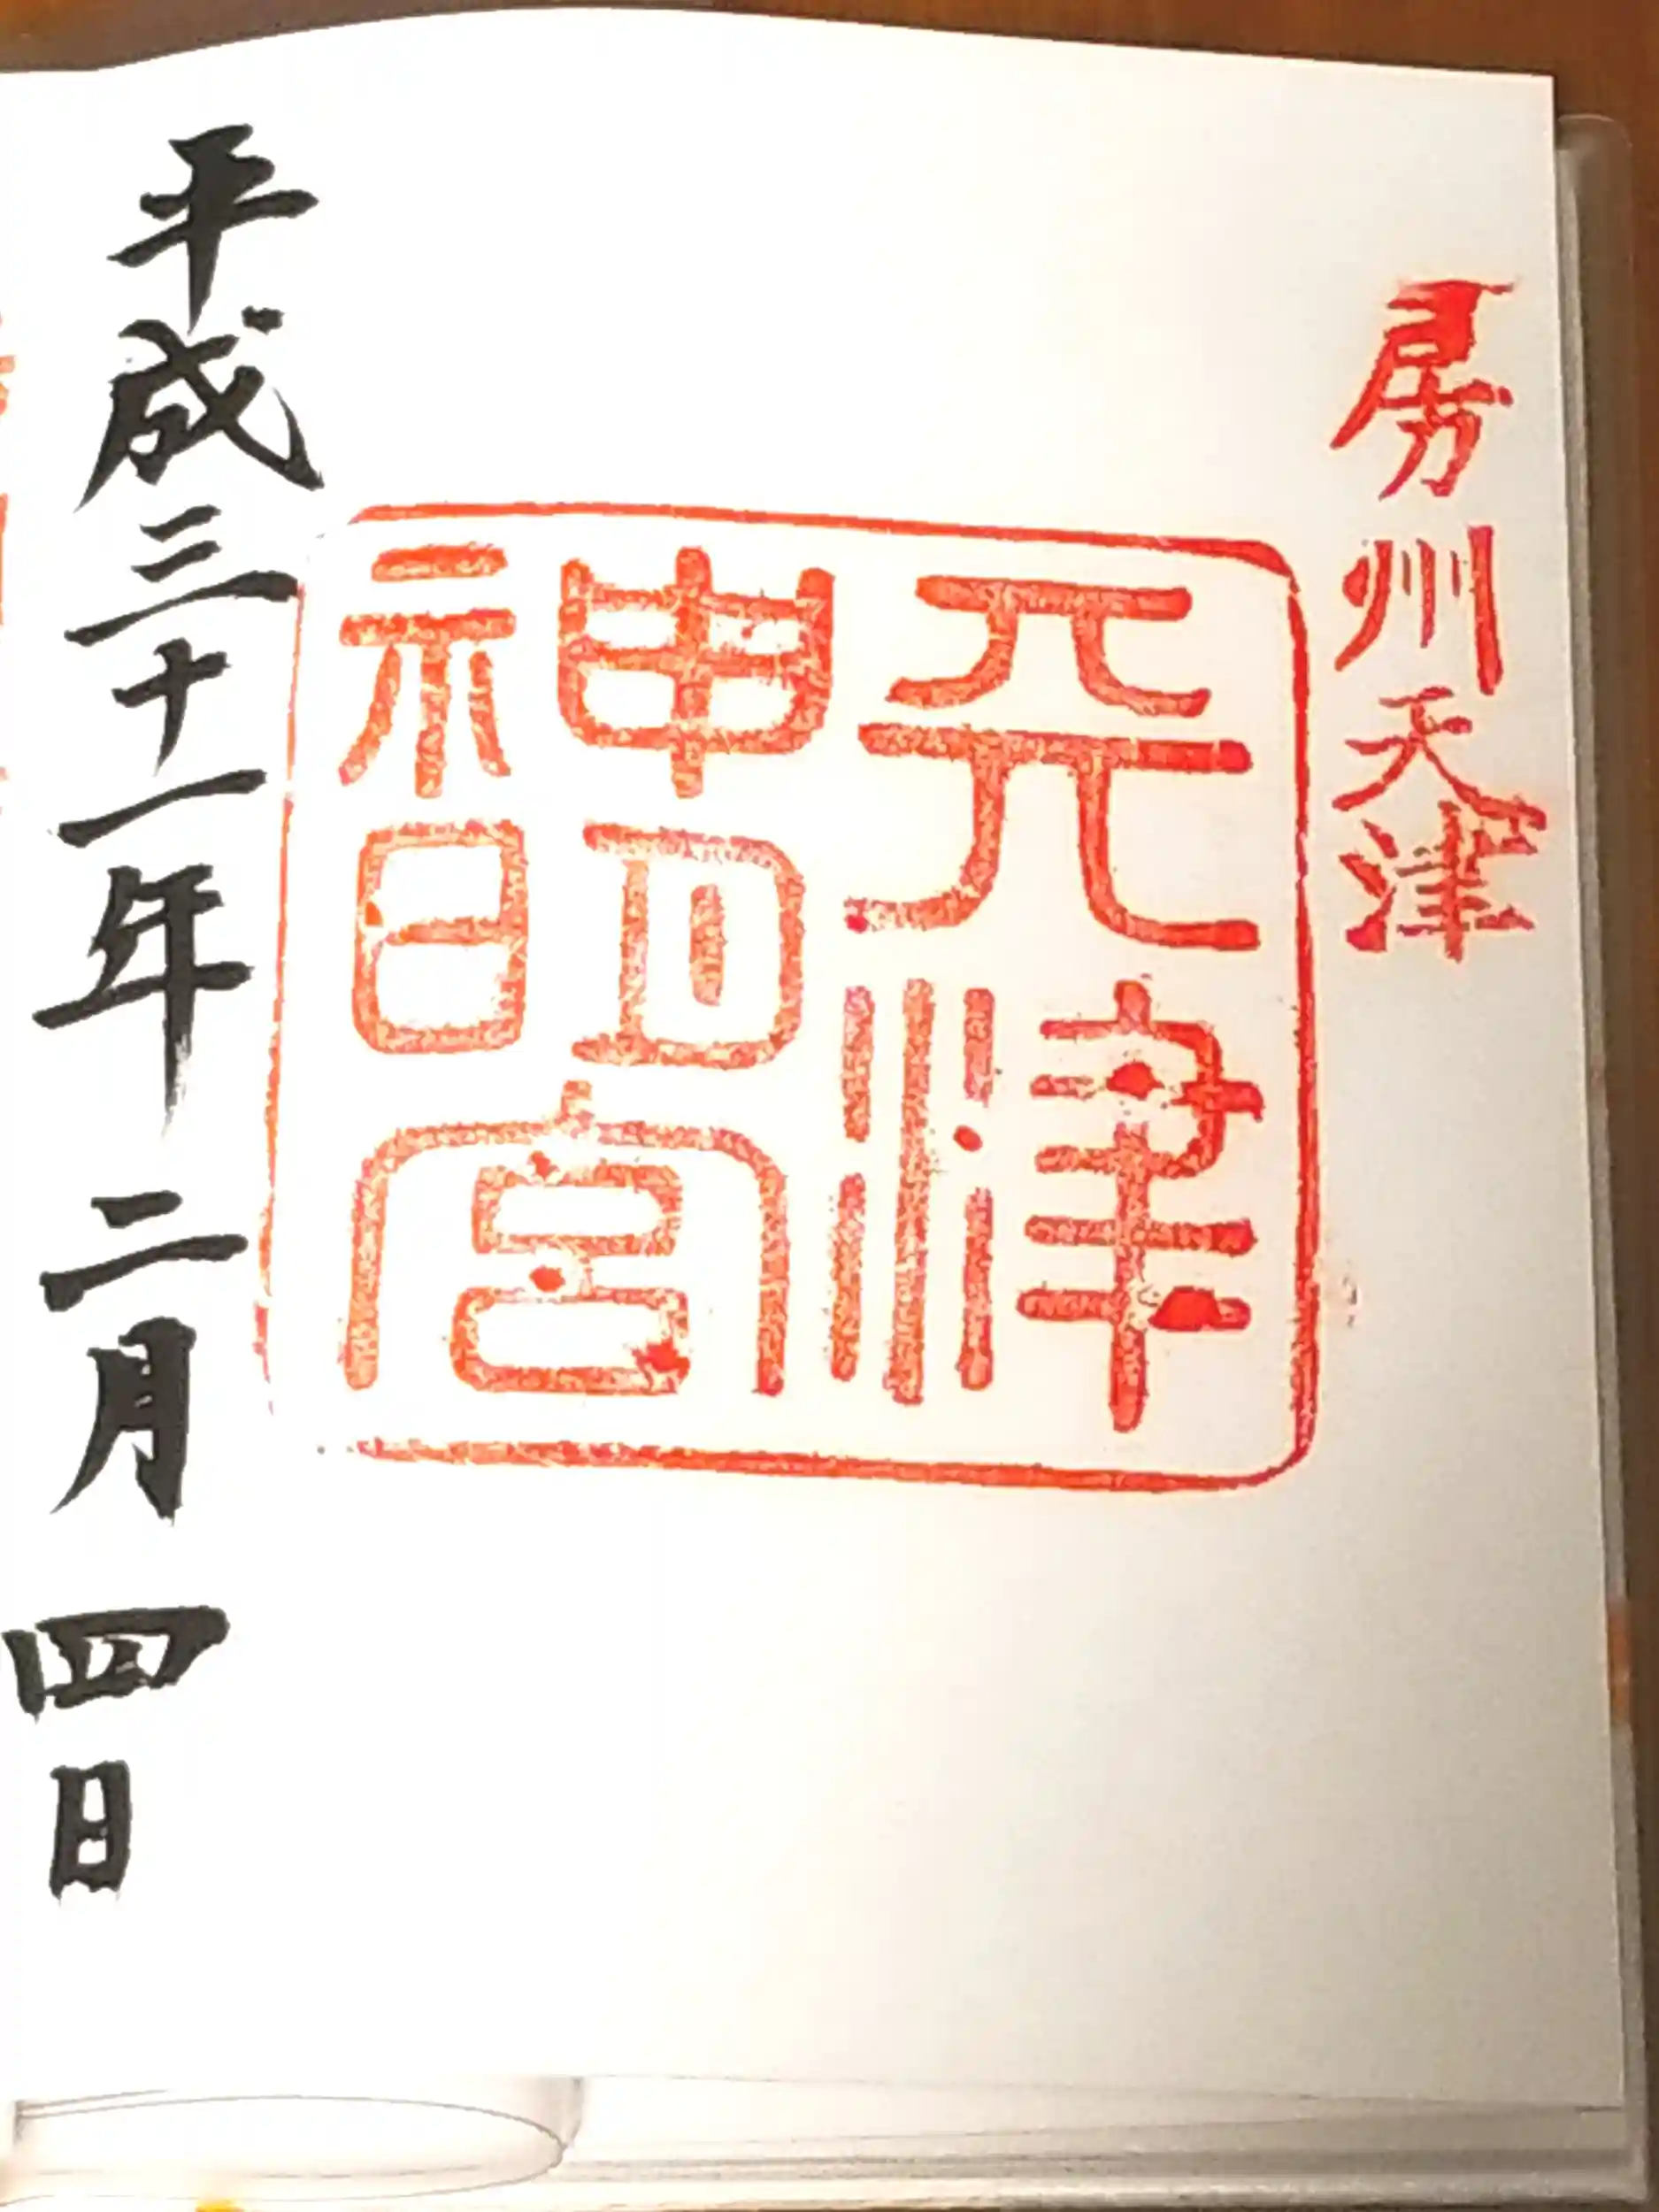 房州天津
天津
神明宮
平成三十一年 二月 四日